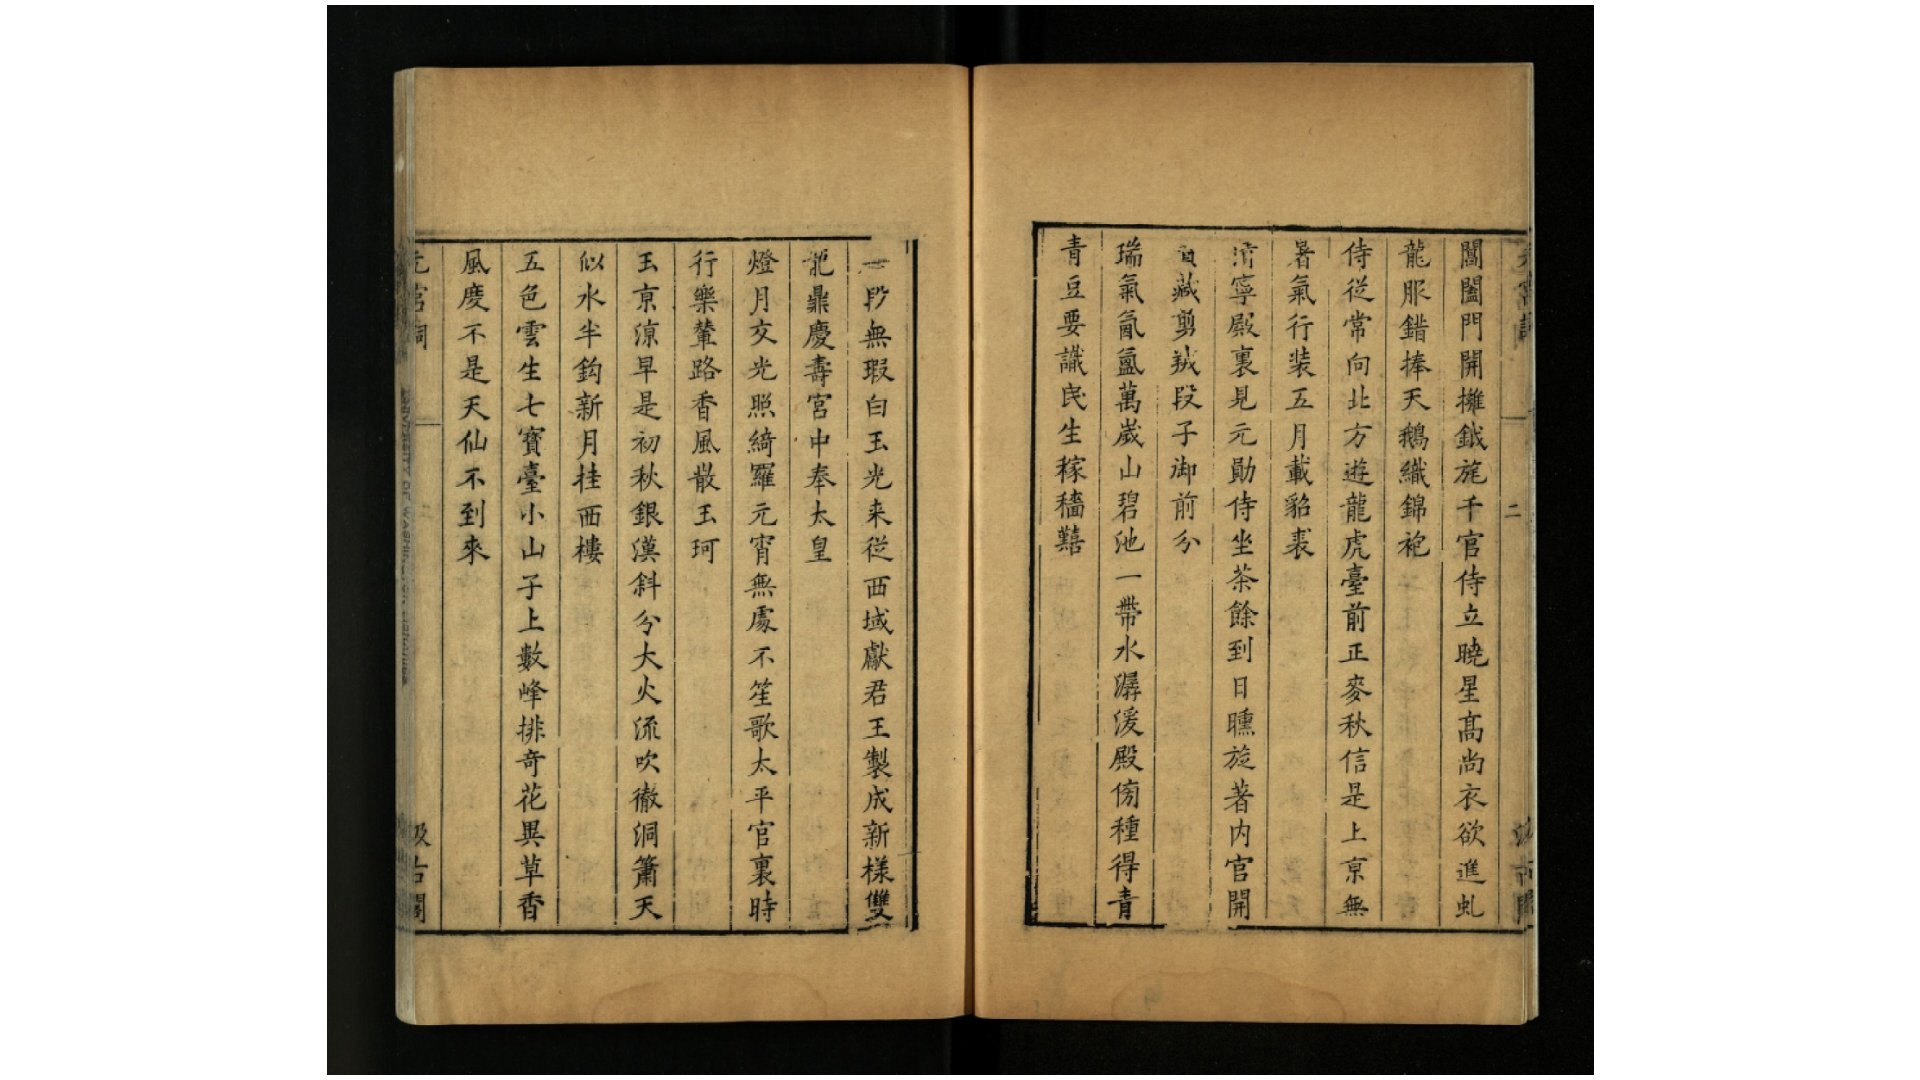 元宮詞
二
汲古閣
閶闔門開擁鉞旄千官侍立曉星髙尚衣欲進虬
龍服錯捧天鵝織錦袍
侍從常向北方遊龍虎臺前正麥秋信是上亰無
暑氣行裝五月載貂裘
清寧殿裏見元勛侍坐茶餘到日曛旋著内官開
藏剪羢段子御前分
瑞氣氤氳萬嵗山碧池一帶水潺湲殿傍種得青
青豆要識民生稼穡囏
一段無瑕白玉光来從西域獻君王製成新様雙
龍鼎慶壽宮中奉太皇
燈月交光照綺羅元宵無處不笙歌太平官裏時
行樂輦路香風散玉珂
玉亰凉早是初秋銀漢斜分大火流吹徹洞簫天
似水半鈎新月挂西樓
五色雲生七寳臺小山子上數峰排奇花異草香
風度不是天仙不到來
元宮詞
汲古閣